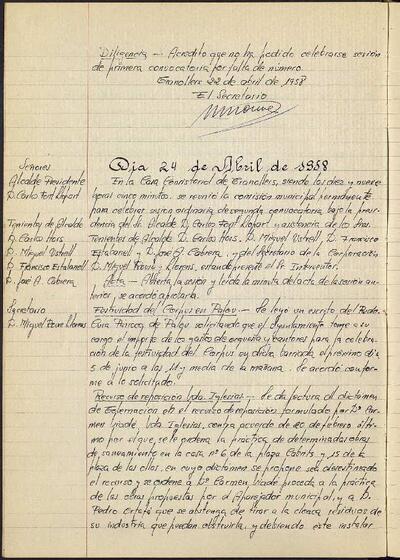 Diligencia — Acredito que no ha podido celebrarse sesión
de primera convocatoria por falta de número.
Granollers 22 de abril de 1958
El Secretario
Día 24 de Abril de 1958
Señores
Alcalde Presidente
D. Carlos Font Llopart
Tenientes de Alcalde
D. Carlos Hors
D. Miguel Ustrell
D. Francisco Estabanell
D. José A. Cabrera
Secretario
D. Miguel Llorens
En la Casa Consistorial de Granollers, siendo las diez y nueve
horas cinco minutos, se reunió la comisión municipal permanente
para celebrar sesión ordinaria de segunda convocatoria, bajo la presi-
dencia del Sr. Alcalde D. Carlos Font Llopart y asistencia de los Sres.
Tenientes de Alcalde D. Carlos Hors, D. Miguel Ustrell, D. Francisco
Estabanell y D. José A. Cabrera, y del Secretario de la Corporación
D. Miguel y Llorens, estando presente el Sr. Interventor.
Acta — Abierta la sesión y leída la minuta del acta de la sesión ante-
rior, se acordó aprobarla.
Festividad del Corpus en Palou — Se leyó un escrito del Rvdo.
Cura Párroco de Palou solicitando que el Ayuntamiento tome a su
cargo el importe de los gastos de orquesta y cantores para la celebra-
ción de la festividad del Corpus en dicha barriada el próximo día
5 de junio a las 11 y media de la mañana. Se acordó confor-
me a lo solicitado.
Recurso de reposición Vda. Iglesias — Se da lectura al dictamen
de Gobernación en el recurso de reposición formulado por Dª Car-
men Viade, Vda. Iglesias, contra acuerdo de 20 de febrero últi-
mo por el que se le ordena la práctica de determinadas obras
de saneamiento en la casa nº 6 de la plaza Cabrits y 15 de la
plaza de las ollas, en cuyo dictamen se propone sea desestimado
el recurso y se ordene a Dª Carmen Viade proceda a la práctica
de las obras propuestas por el Aparejador municipal, y a D.
Pedro que se abstenga de tirar a la cloaca residuos de
su industria que puedan obstruirla y debiendo éste instalar